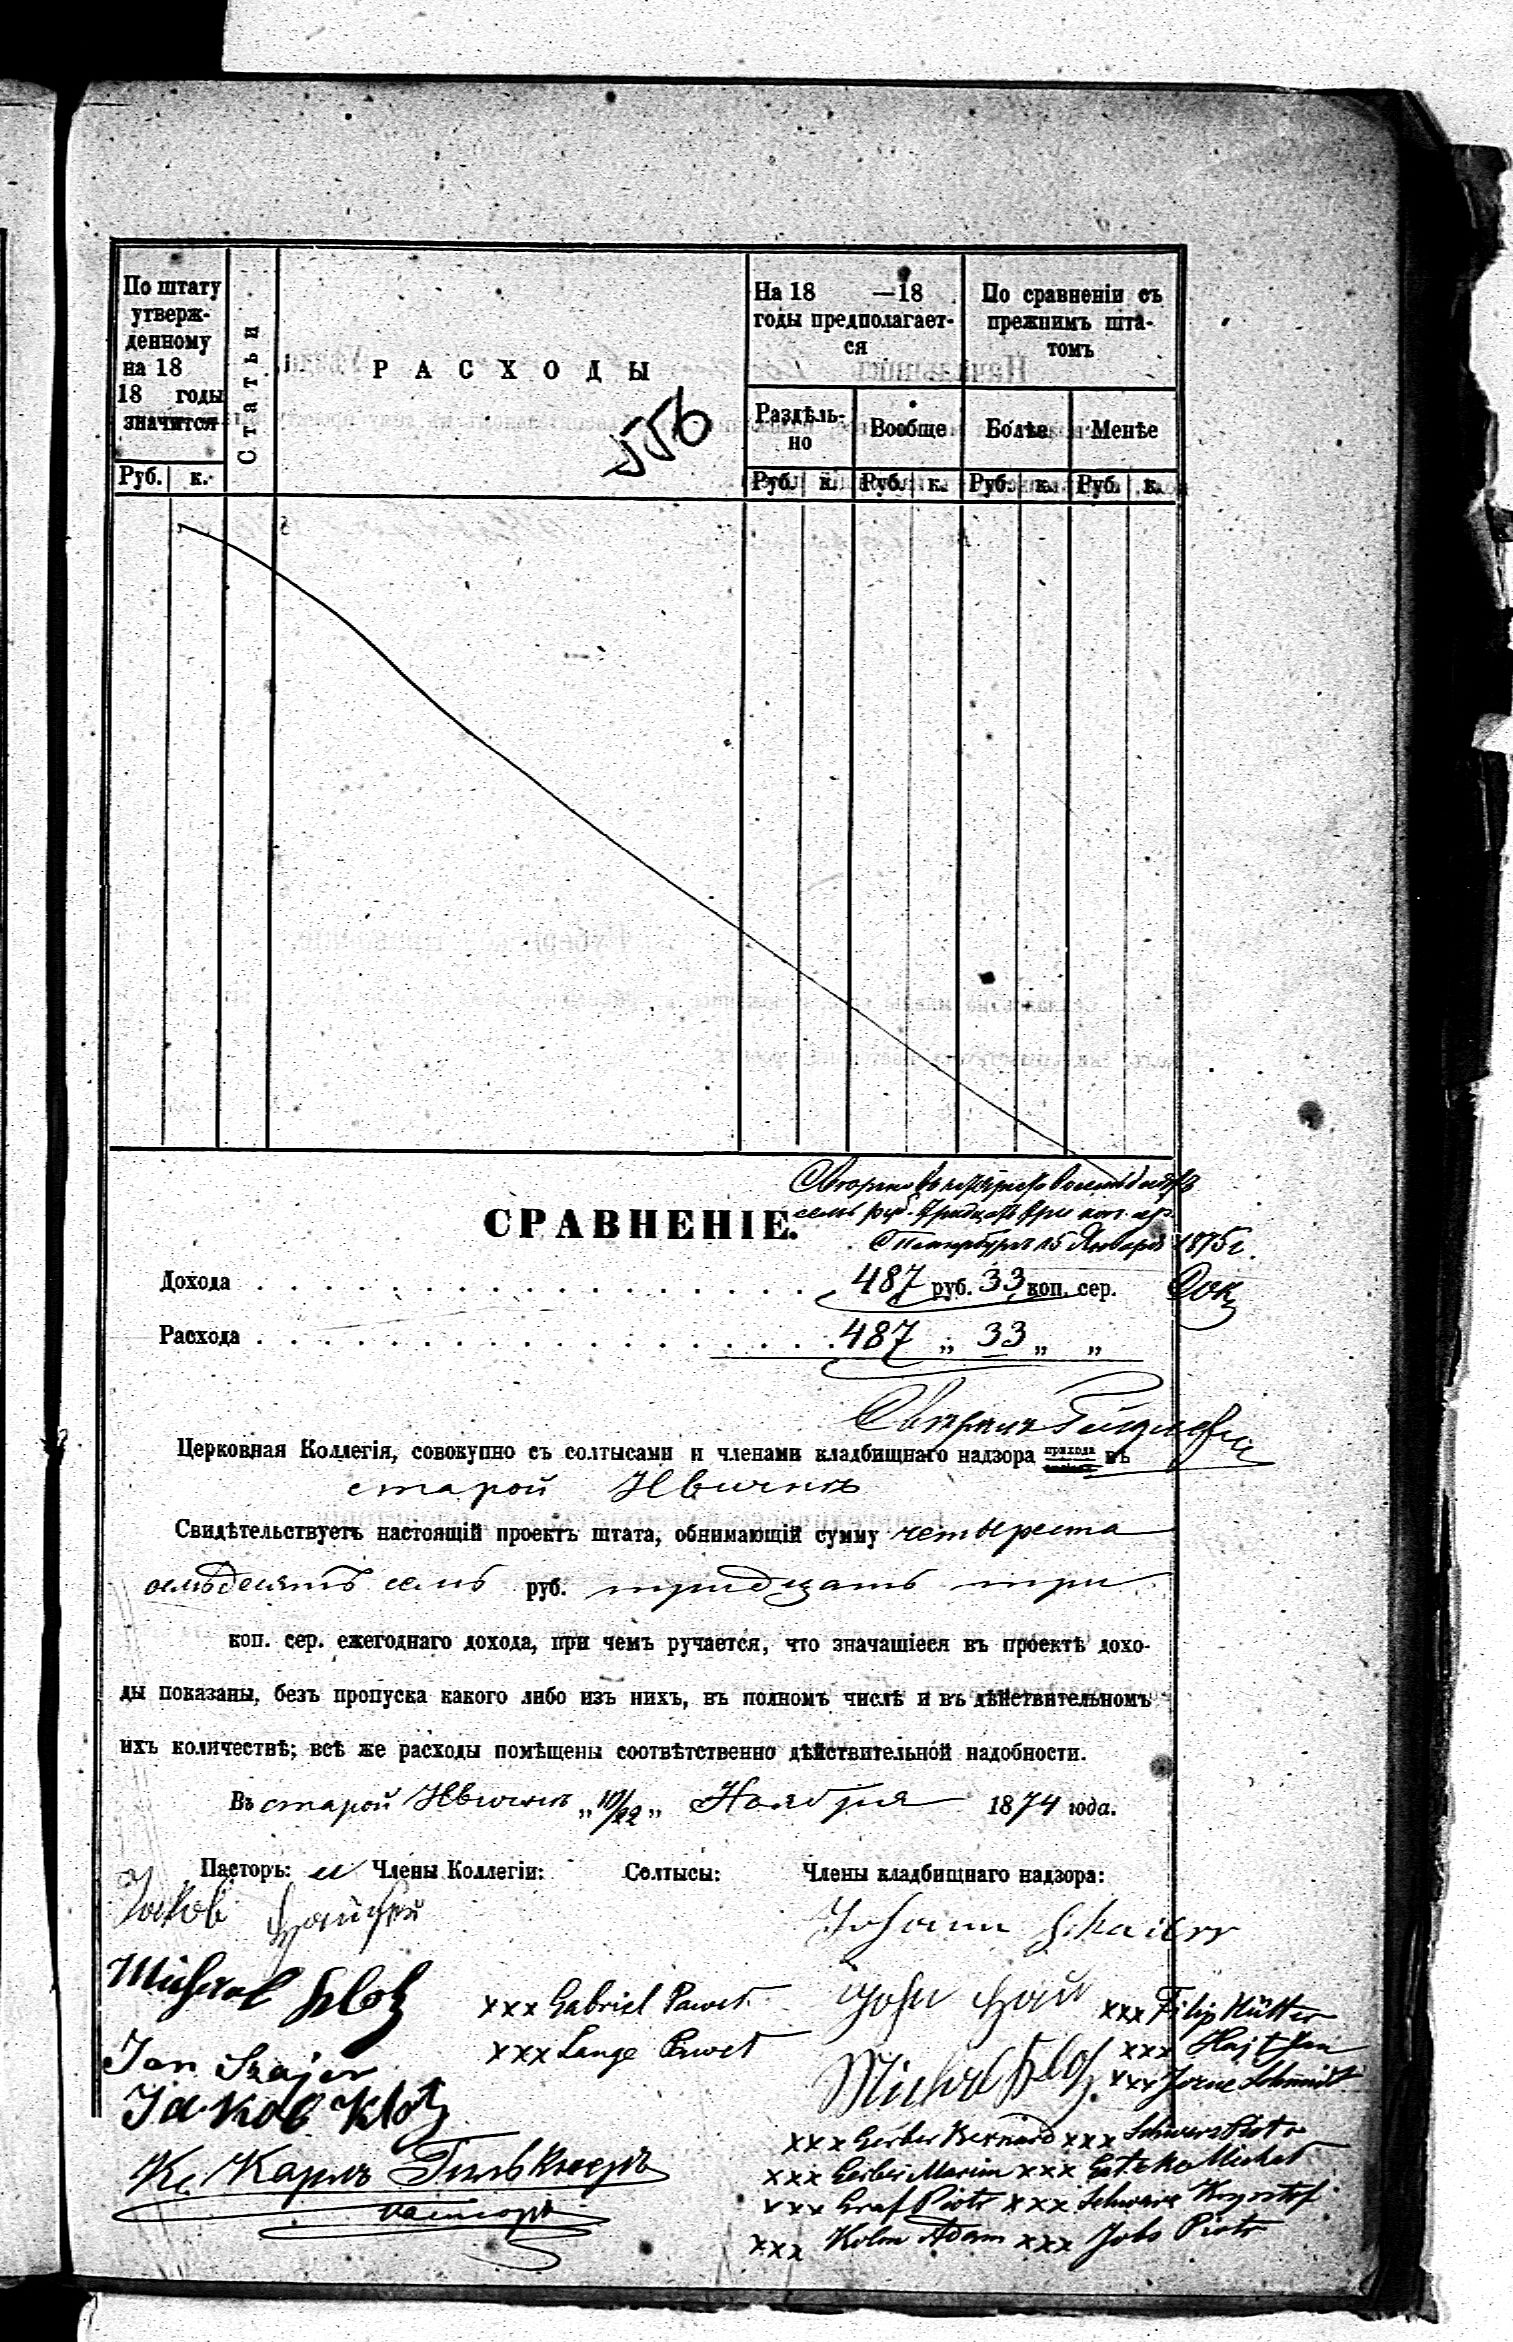 По штату
утверж-
денному
на 18
18 годы
значится
Статьи
РАСХОДЫ
556
На 18 —18
годы предполагает-
ся
По сравненіи съ
прежнимъ шта-
томъ
Раздѣль-
но
Вообще
Болѣе
Менѣе
Руб. к.
Руб. к. Руб. к. Руб. к. Руб. к.
семь руб. тридцать три коп. сер.
15 Января 1875 г.
СРАВНЕНІЕ.
Дохода . . . 487 руб. 33 коп. сер.
Расхода . . . 487 „ 33 „ „
Церковная Коллегія, совокупно съ солтысами и членами кладбищнаго надзора прихода въ
старой Ивичнѣ
Свидѣтельствуетъ настоящій проектъ штата, обнимающій сумму четыреста
осмьдесятъ семь руб. тридцать три
коп. сер. ежегоднаго дохода, при чемъ ручается, что значащіеся въ проектѣ дохо-
ды показаны, безъ пропуска какого либо изъ нихъ, въ полномъ числѣ и въ дѣйствительномъ
ихъ количествѣ; всѣ же расходы помѣщены соотвѣтственно дѣйствительной надобности.
Въ старой Ивичнѣ „10/22„ Ноября 1874 года.
Пасторъ: и Члены Коллегіи: Солтысы: Члены кладбищнаго надзора:
Jakob
Johann
Michael Kloz
xxx Gabriel Paweł
xxx Filip Hütter
Jan Szajer
xxx Lange Paweł
xxx Hajt Jan
Michael Kloz
xxx Schmidt
Jakob Kloz
xxx Gerber Bernard xxx Schwarz Piotr
xxx Gerber Marcin xxx Michał
Кс. Карлъ
пасторъ
xxx Graf Piotr xxx Schwarz Krysztof
xxx Kolm Adam xxx Jobs Piotr